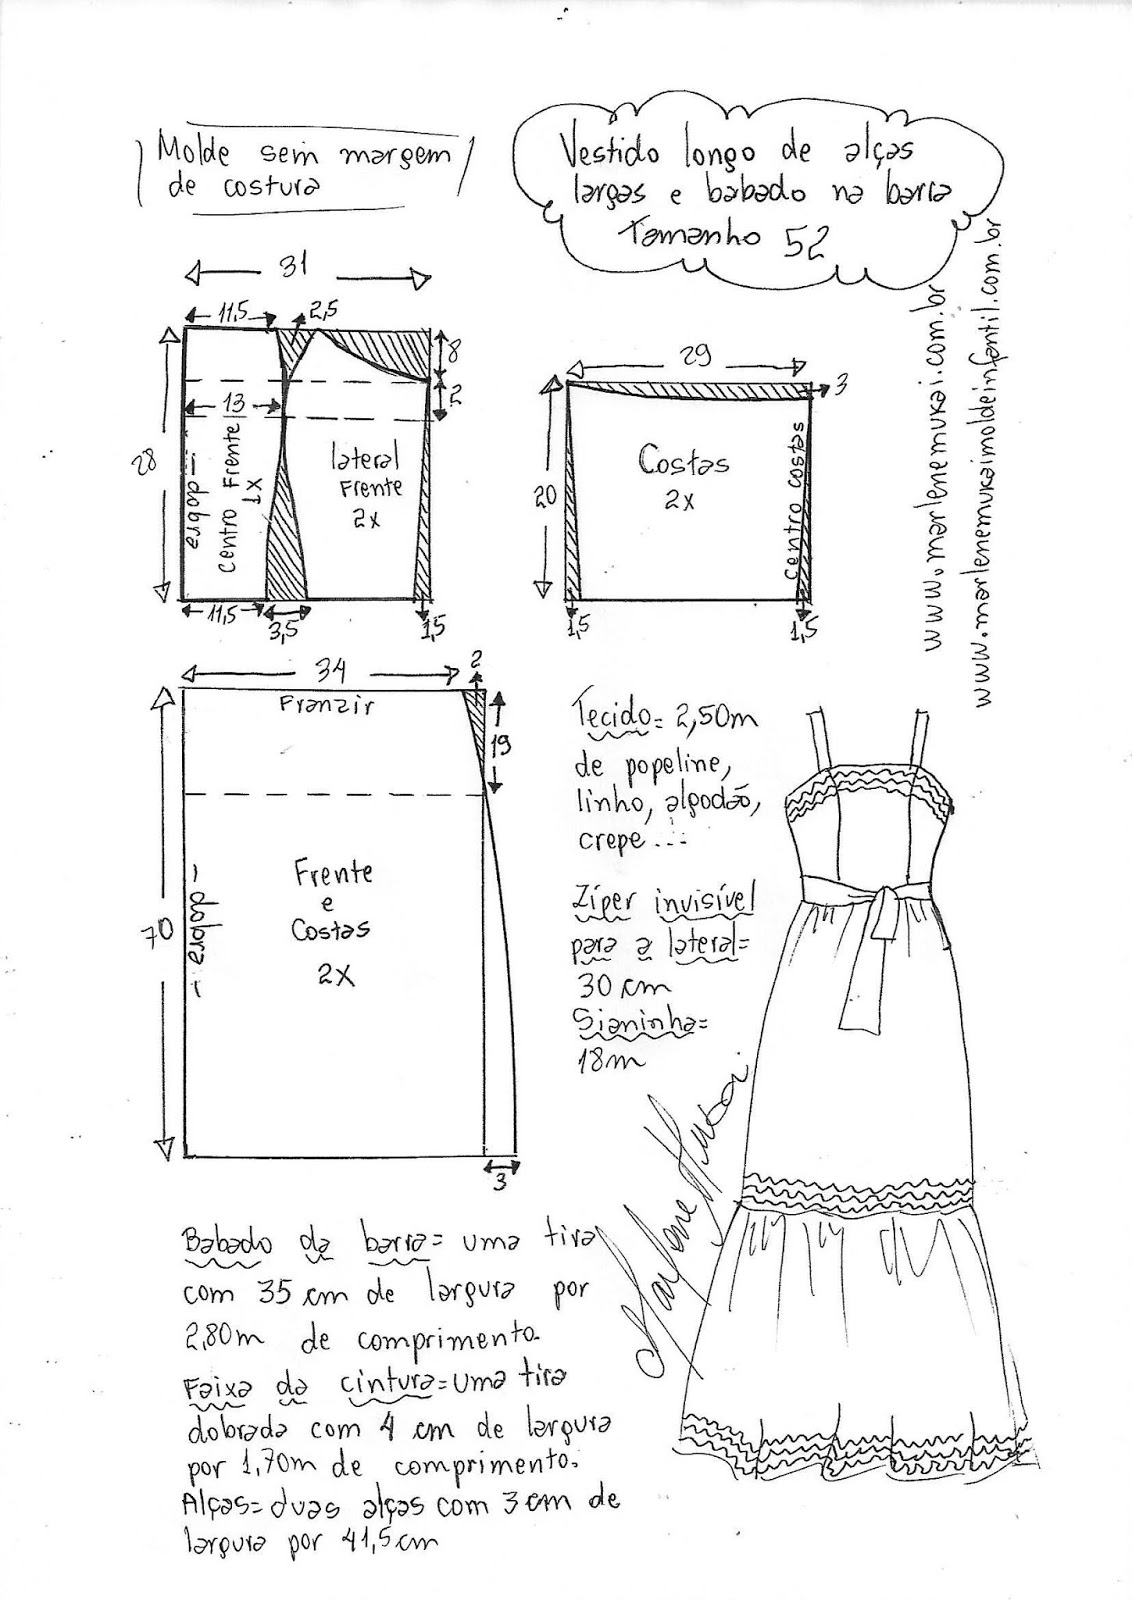 Molde sem margem
de costura
Vestido longo de alças
largas e babado na barra
Tamanho 52
www.marlenemukai.com.br
www.marlenemukaimoldeinfantil.com.br
31
11,5
2,5
8
2
13
28
dobra
Centro Frente
1X
lateral
Frente
2x
11,5
3,5
1,5
29
3
20
Costas
2x
Centro costas
1,5
1,5
34
2
Franzir
19
70
- dobra -
Frente
e
Costas
2X
3
Tecido= 2,50m
de popeline,
linho, algodão,
crepe...
Zíper invisível
para a lateral=
30 cm
Sianinha=
18m
Marlene Mukai.
Babado da barra= uma tira
com 35 cm de largura por
2,80m de comprimento.
Faixa da cintura=uma tira
dobrada com 4 cm de largura
por 1,70m de comprimento.
Alças= duas alças com 3 cm de
largura por 41,5 cm